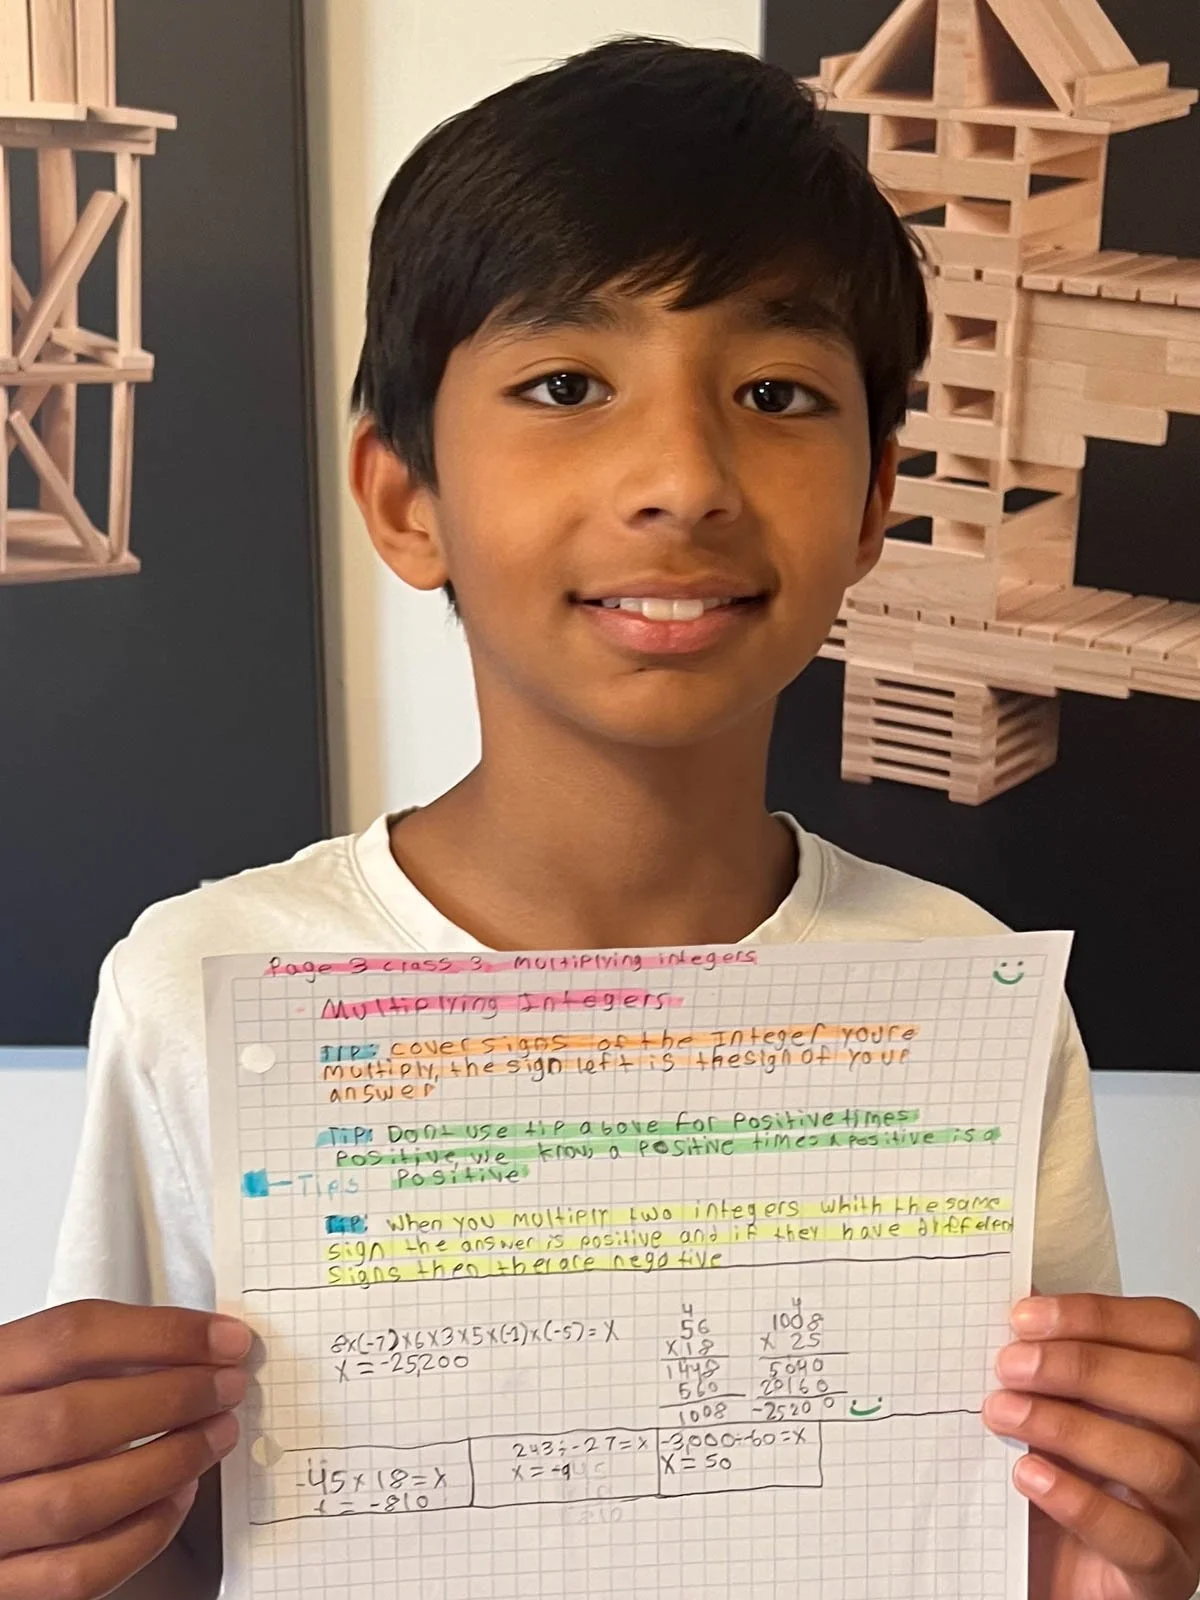 Page 3 class 3 Multiplying integers
Multiplying Integers
TIP: cover signs of the Integer youre
multiply, the sign left is the sign of your
answer
TIP: Dont use tip above for positive times
positive, we know a positive times a positive is a
Tips positive
TIP: When you multiply two integers whith the same
sign the answer is positive and if they have different
signs then ther are negative
8x(-7)x6x3x5x(-1)x(-5)=x
x=-25,200
4
56
x18
1448
560
1008
4
1008
x 25
5040
20160
-25200
-45x18=x
x=-810
243÷-27=x
x=-9
-3,000÷-60=x
x=50